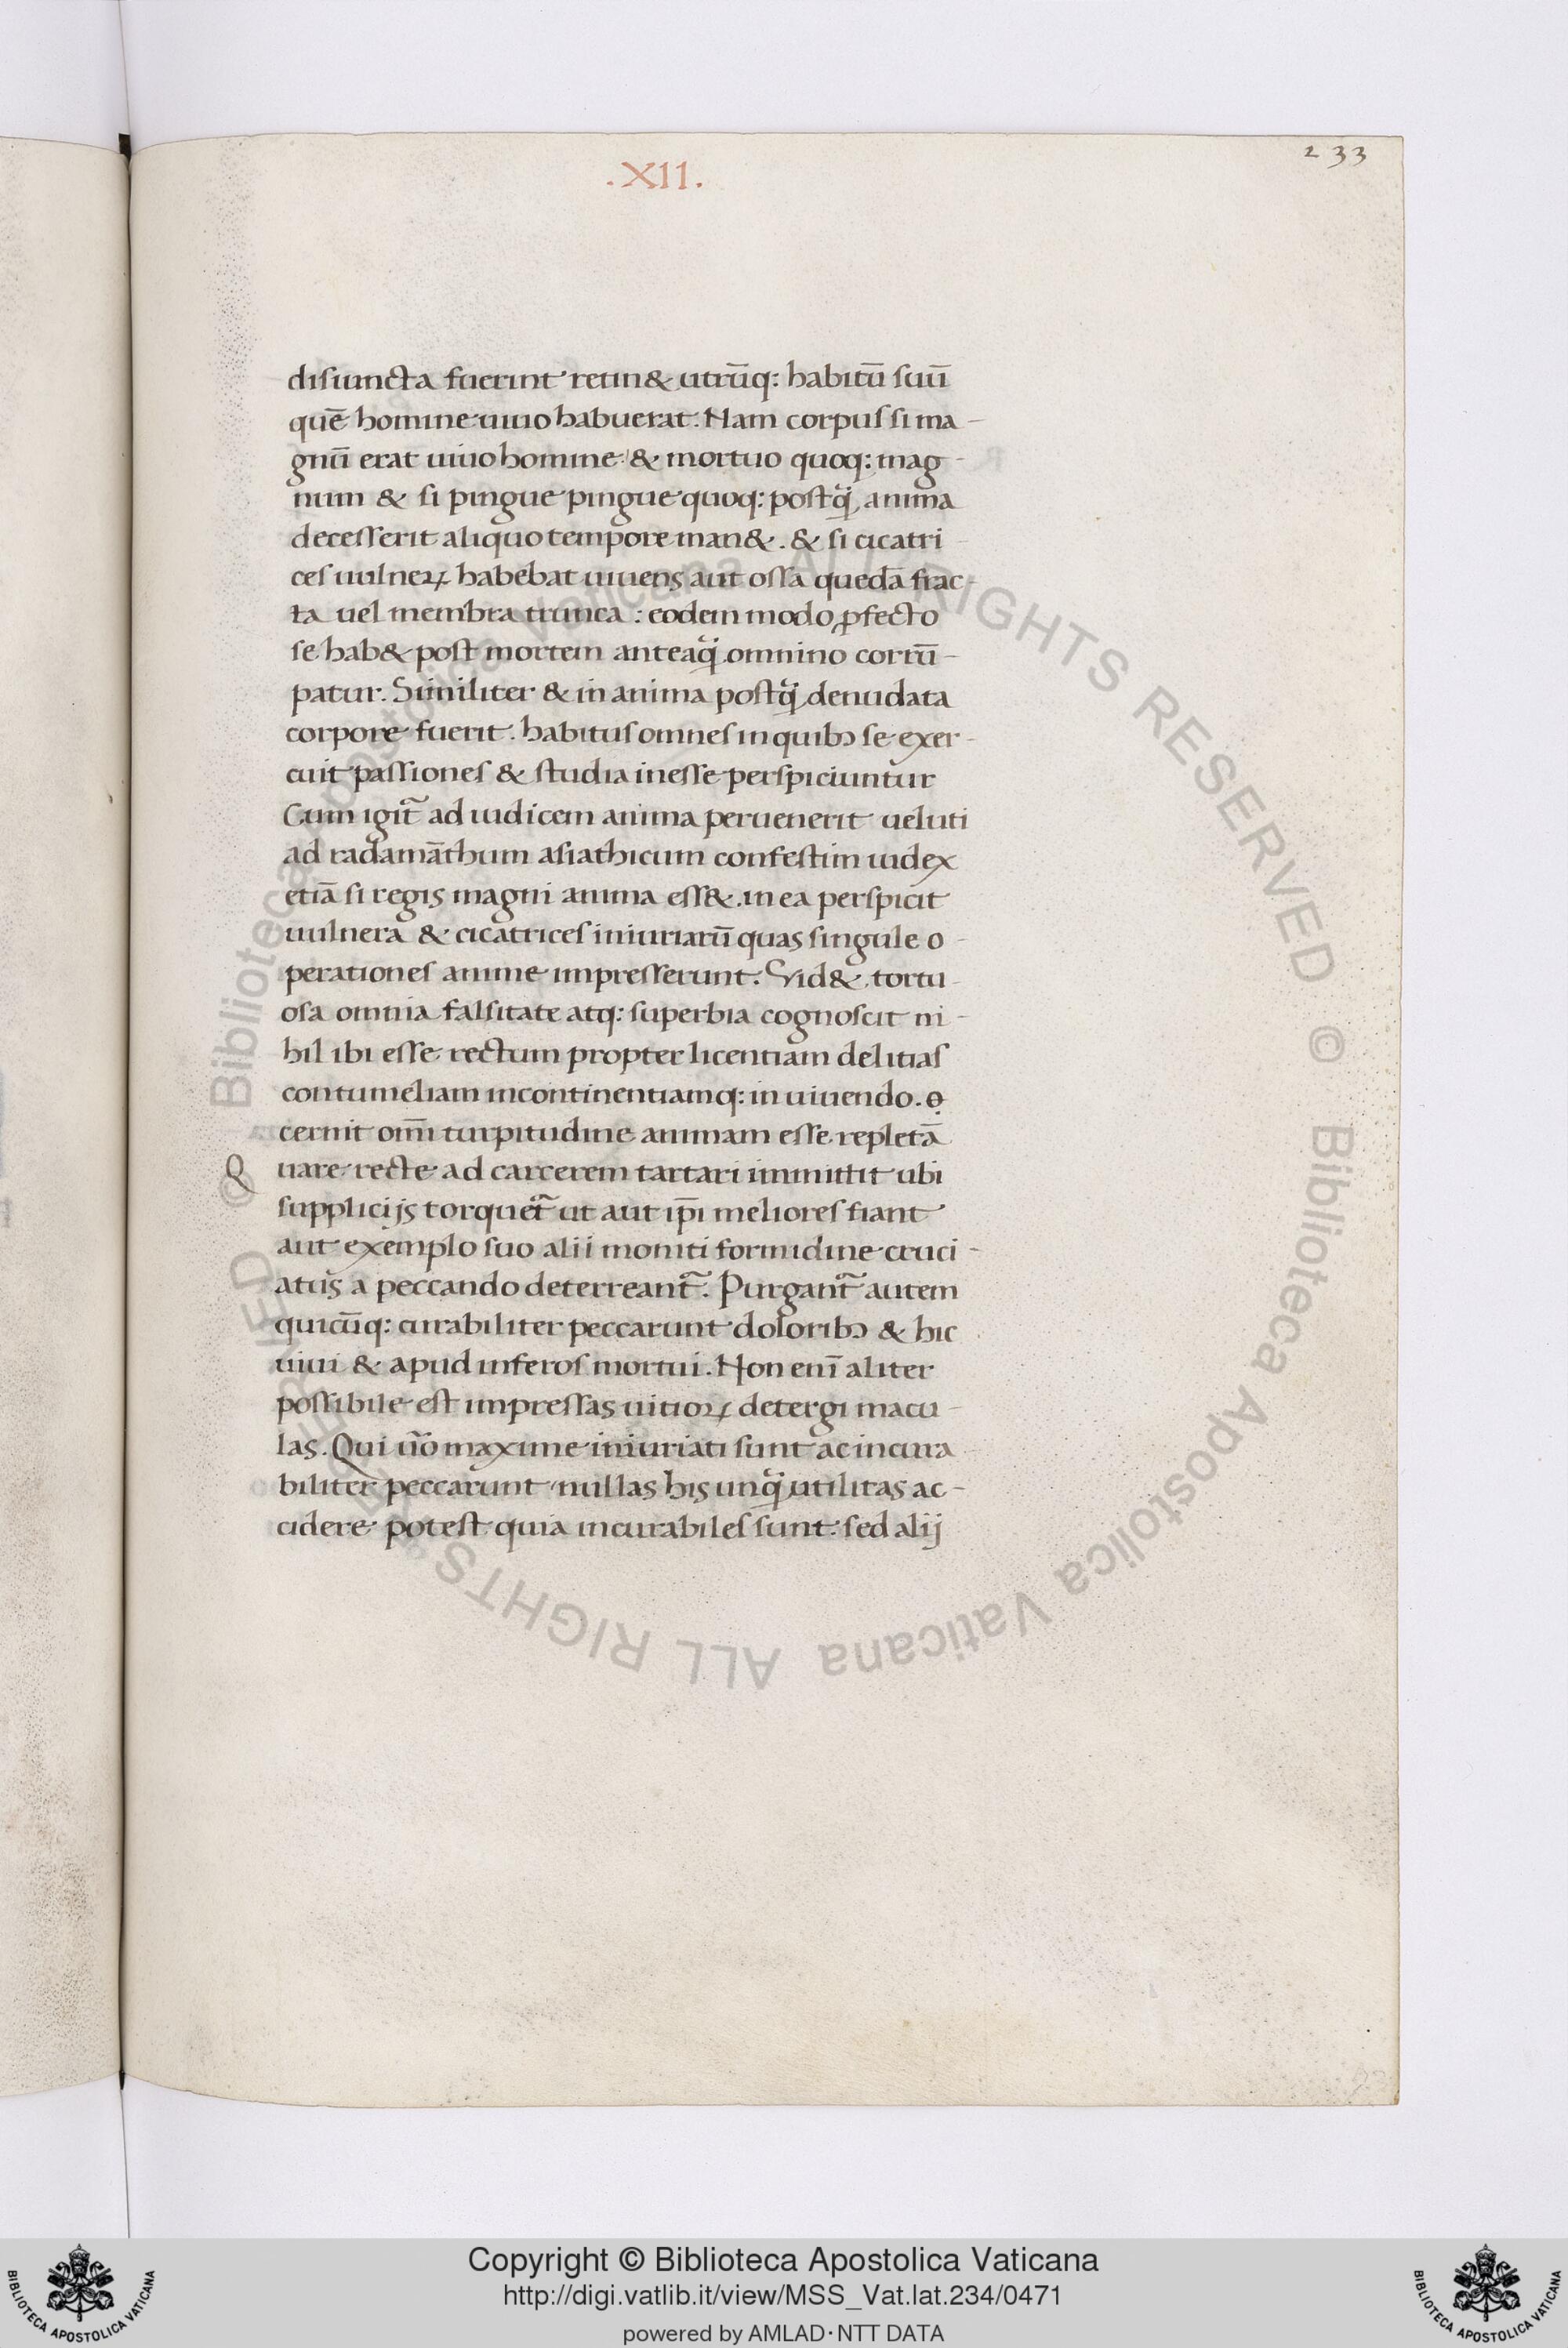 .XII.
233
disiuncta fuerint retin& utrūq: habitū suū
quē homine uiuo habuerat. Nam corpus si ma-
gnū erat uiuo homine: & mortuo quoq: mag-
num & si pingue pingue quoq: postq̃ anima
decesserit aliquo tempore man&. & si cicatri-
ces uulneꝝ habebat uiuens aut ossa quedā frac-
ta uel membra trunca: eodem modo ꝓfecto
se hab& post mortem anteaq̃ omnino corrū-
patur. Similiter & in anima postq̃ denudata
corpore fuerit. habitus omnes in quibꝫ se exer-
cuit passiones & studia inesse perspiciuntur
Cum igit̃ ad iudicem anima peruenerit ueluti
ad radamāthum asiathicum confestim iudex
etiā si regis magni anima ess&. in ea perspicit
uulnera & cicatrices iniuriarū quas singule o-
perationes anime impresserunt. Vid& tortu-
osa omnia falsitate atq: superbia cognoscit ni-
hil ibi esse rectum propter licentiam delitias
contumeliam incontinentiamq: in uiuendo.
cernit om̄i turpitudine animam esse repletā
Quare recte ad carcerem tartari immittit ubi
supplicijs torquet̃ ut aut ip̄i meliores fiant
aut exemplo suo alii moniti formidine cruci-
atus a peccando deterreant̃. Purgant̃ autem
quicūq: curabiliter peccarunt doloribꝫ & hic
uiui & apud inferos mortui. Non eni̅ aliter
possibile est impressas uitioꝝ detergi macu-
las. Qui ūo maxime iniuriati sunt ac incura
biliter peccarunt nullas his unq̃ utilitas ac-
cidere potest quia incurabiles sunt. sed alij
Copyright © Biblioteca Apostolica Vaticana
http://digi.vatlib.it/view/MSS_Vat.lat.234/0471
powered by AMLAD·NTT DATA
BIBLIOTECA APOSTOLICA VATICANA
BIBLIOTECA APOSTOLICA VATICANA
© Biblioteca Apostolica Vaticana ALL RIGHTS RESERVED © Biblioteca Apostolica Vaticana ALL RIGHTS RESERVED